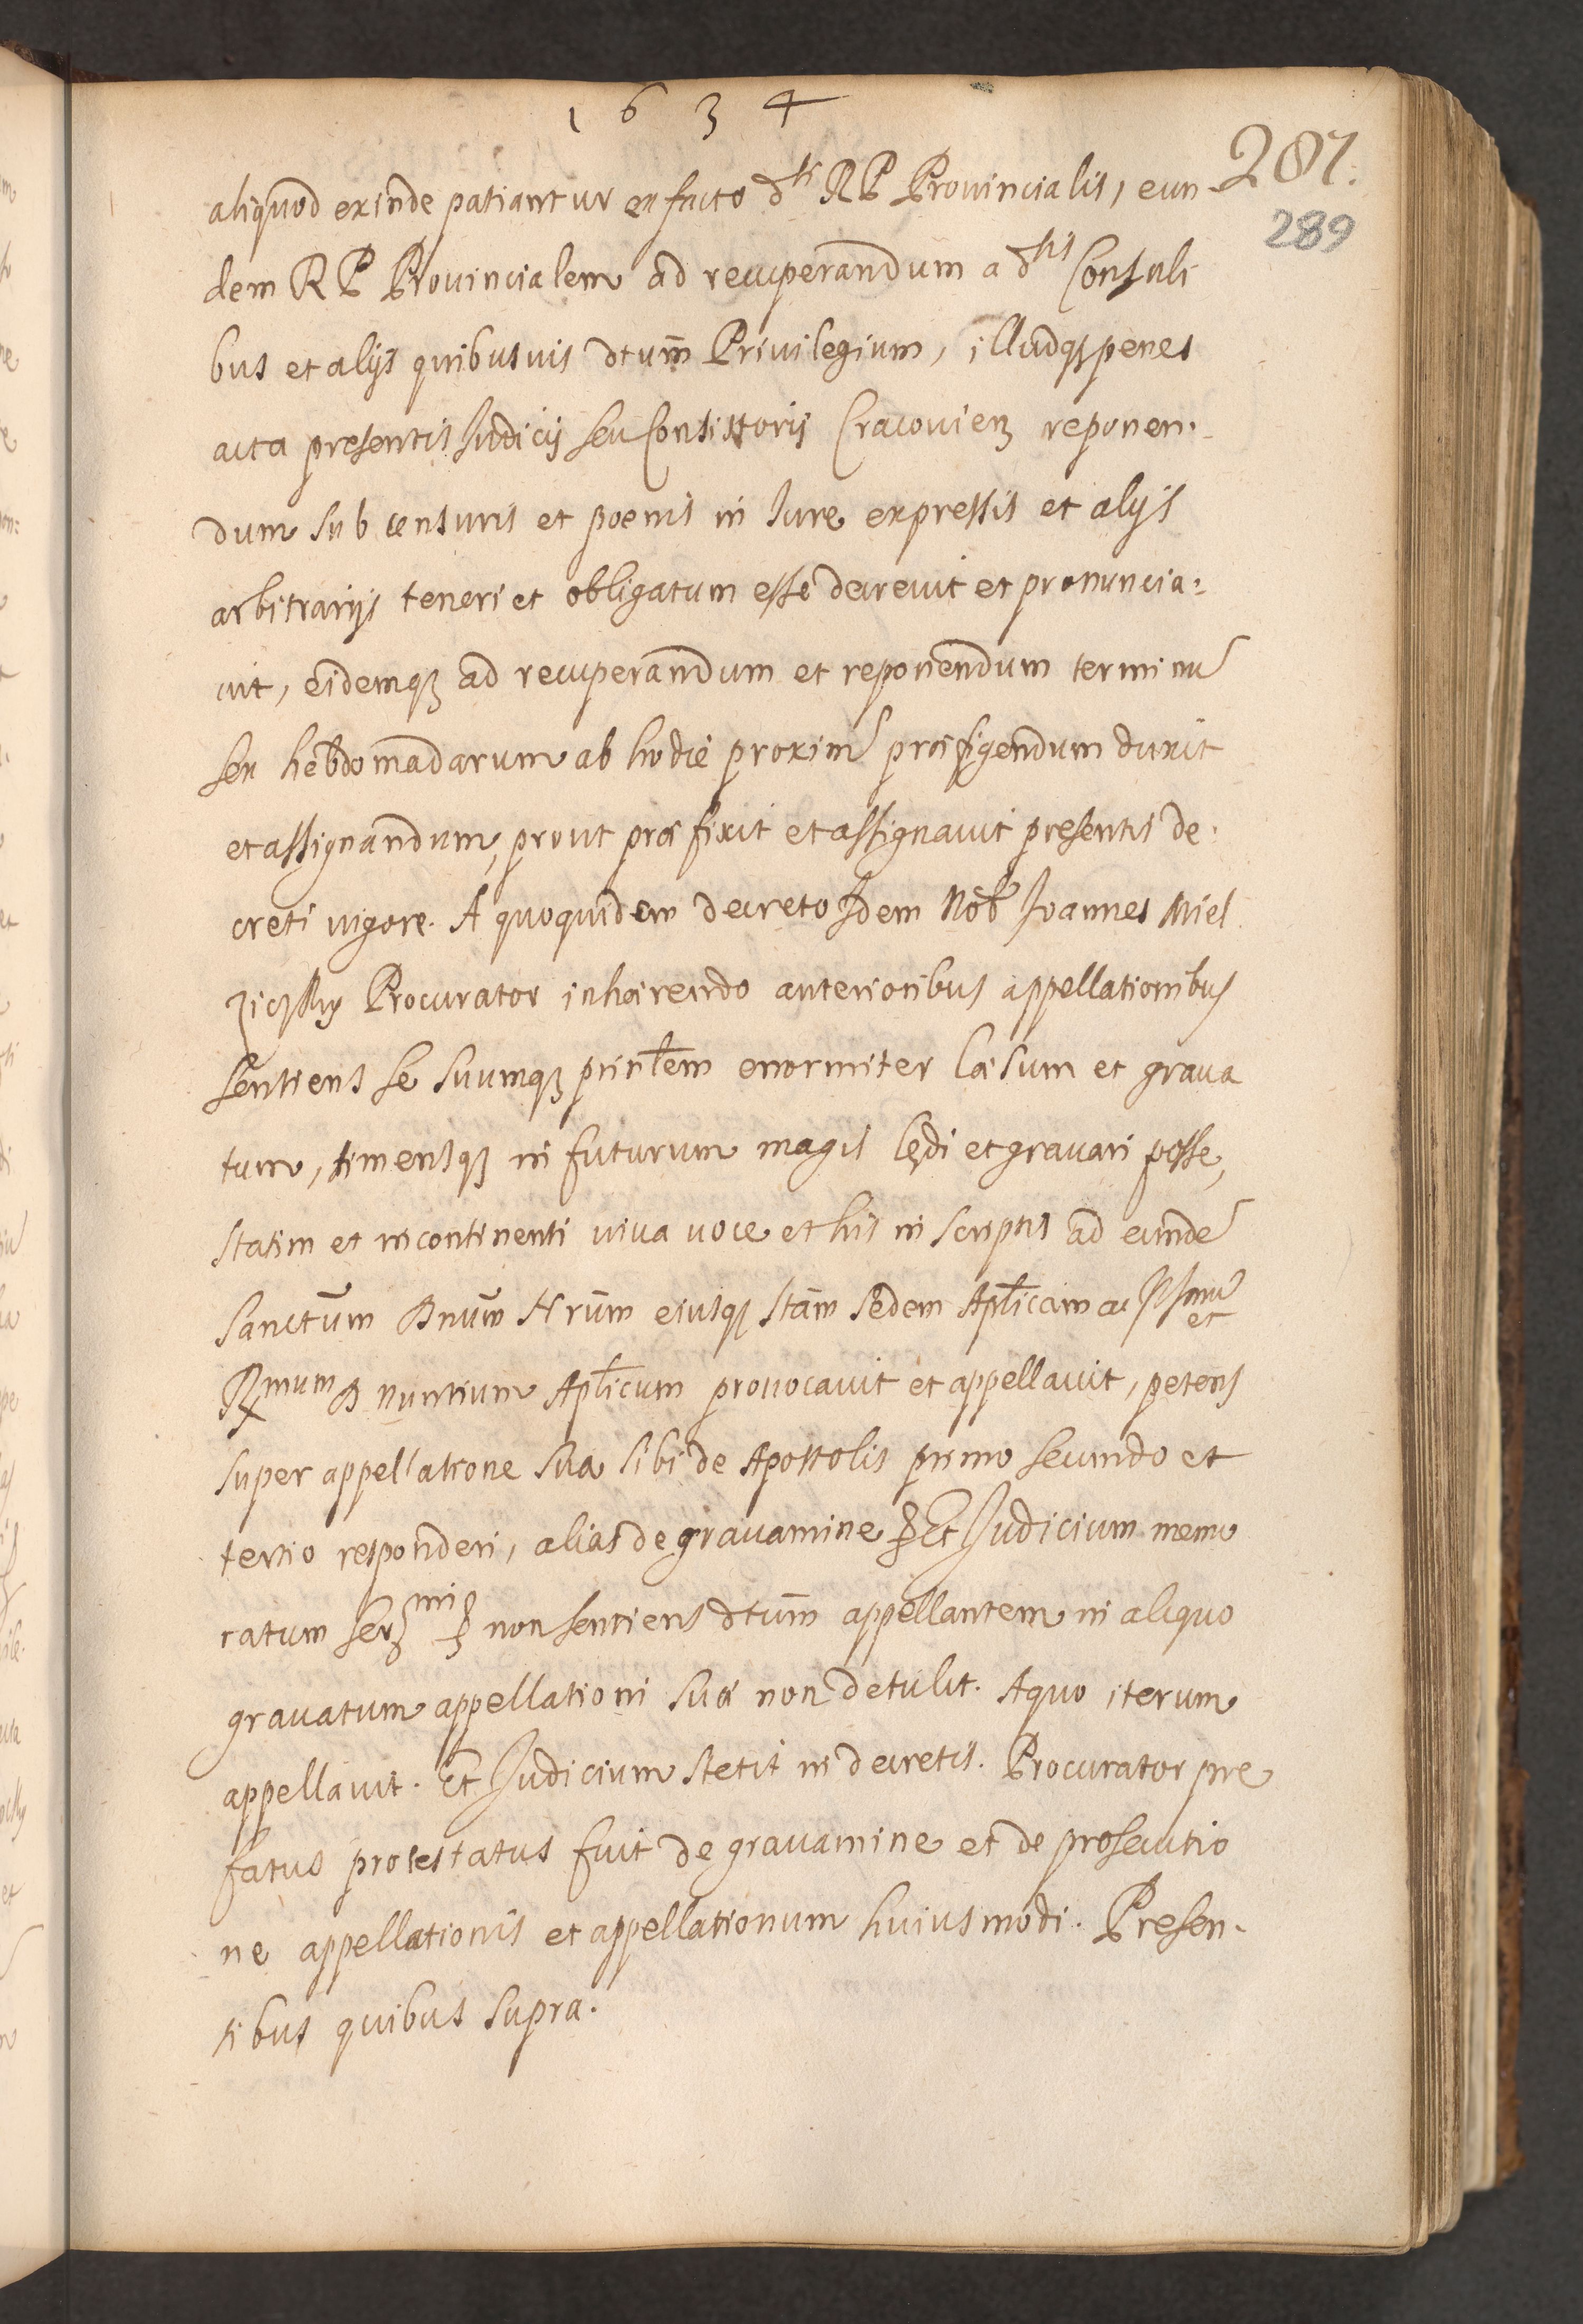 1634
287.
289
aliquod exinde patiantur ex facto dti RP Prouincialis, eun
dem RP Prouincialem ad recuperandum a dtis Consuli
bus et alijs quibusuis dtum Priuilegium, illudqȝ penes
acta presentis Judicij seu Consistorij Cracouien reponen.
dum sub censuris et poenis in Jure expressis et alijs
arbitrarijs teneri et obligatum esse decreuit et pronuncia:
uit, eidemqȝ ad recuperandum et reponendum terminu
sex hebdomadarum ab hodie proxim præfigendum duxit
et assignandum, prout præfixit et assignauit presentis de.
creti uigore. A quoquidem decreto Idem Nob Joannes Miel
Procurator inhærendo anterioribus appellationibus
sentiens se suumqȝ prinlem enormiter læsum et graua
tum, timensqȝ in futurum magis lędi et grauari posse,
statim et incontinenti uiua uoce et his in scriptis ad eunde
Sanctum Dnum Nrum eiusqȝ stam sedem Aplicam ac Illmu et
Rmum D nuntium Aplicum prouocauit et appellauit, petens
super appellatione sua sibi de Apostolis primo secundo et
tertio responderi, alias de grauamine Et Judicium memo
ratum non sentiens dtum appellantem in aliquo
grauatum appellationi suæ non detulit. A quo iterum
appellauit. Et Judicium stetit in decretis. Procurator pre
fatus protestatus fuit de grauamine et de prosecutio
ne appellationis et appellationum huiusmodi. Presen.
tibus quibus supra.